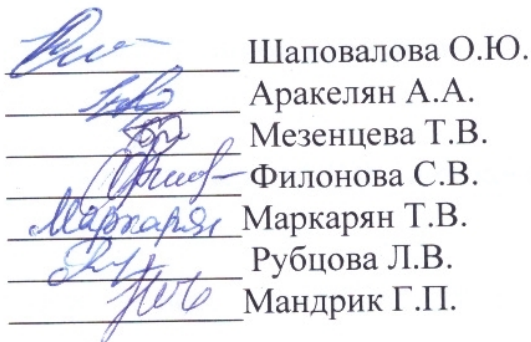 Шаповалова О.Ю.
Аракелян А.А.
Мезенцева Т.В.
Филонова С.В.
Маркарян Маркарян Т.В.
Рубцова Л.В.
Мандрик Г.П.